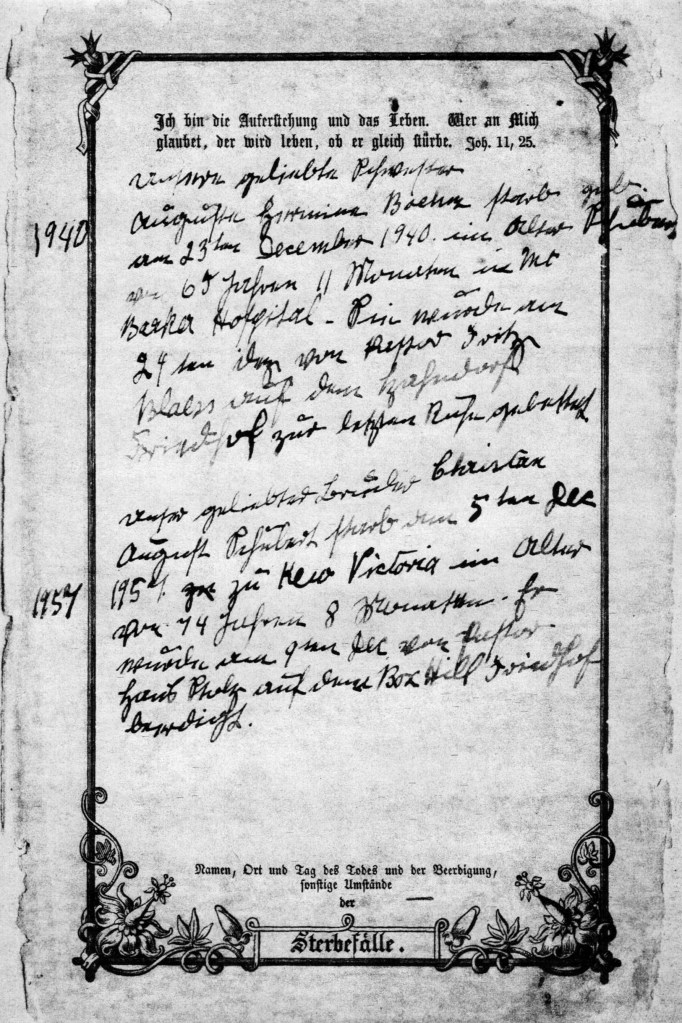 Ich bin die Auferstehung und das Leben. Wer an Mich
glaubet, der wird leben, ob er gleich stürbe. Joh. 11, 25.
Unsere geliebte Schwester
Auguste Hermine Boehm starb geb.
1940 am 23ten December 1940. im Alter Schubert
von 65 Jahren 11 Monaten in Mt
Barker Hospital - Sie wurde am
24ten dez von Pastor Fritz
Blaess auf dem Hahndorf
Friedhof zur letzten Ruhe gebettet
Unser geliebter Bruder Christan
August Schubert starb am 5ten Dec
1957 1957. zu Kew Victoria im Alter
von 74 Jahren 8 Monaten. Er
wurde am 9ten Dec von Pastor
Hans Stolz auf dem Box Hill Friedhof
beerdigt.
Namen, Ort und Tag des Todes und der Beerdigung,
sonstige Umstände
der
Sterbefälle.